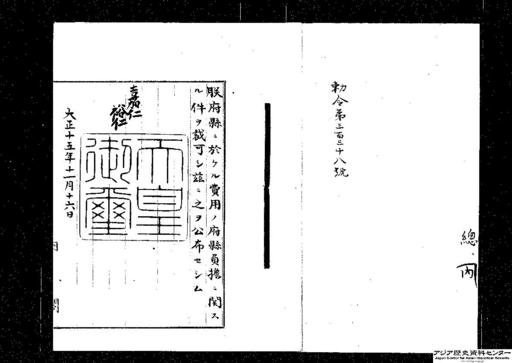 總、内
勅令第三百三十八號
朕府縣ニ於ケル費用ノ府縣負擔ニ關ス
ル件ヲ裁可シ茲ニ之ヲ公布セシム
嘉仁
裕仁
天皇
御璽
大正十五年十一月十六日
内閣
アジア歴史資料センター
Japan Center for Asian Historical Records